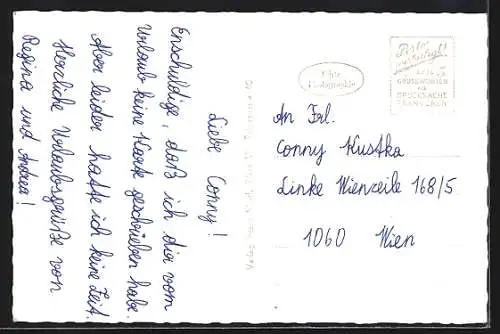 Liebe Conny!
Entschuldige, daß ich dir vom
Urlaub keine Karte geschrieben habe.
Aber leider hatte ich keine Zeit.
Herzliche Urlaubsgrüße von
Regina und Andrea!
Echte
Photographie
GRUSSWORTEN
ALS
DRUCKSACHE
An Frl.
Conny Kustka
Linke Wienzeile 168/5
1060 Wien